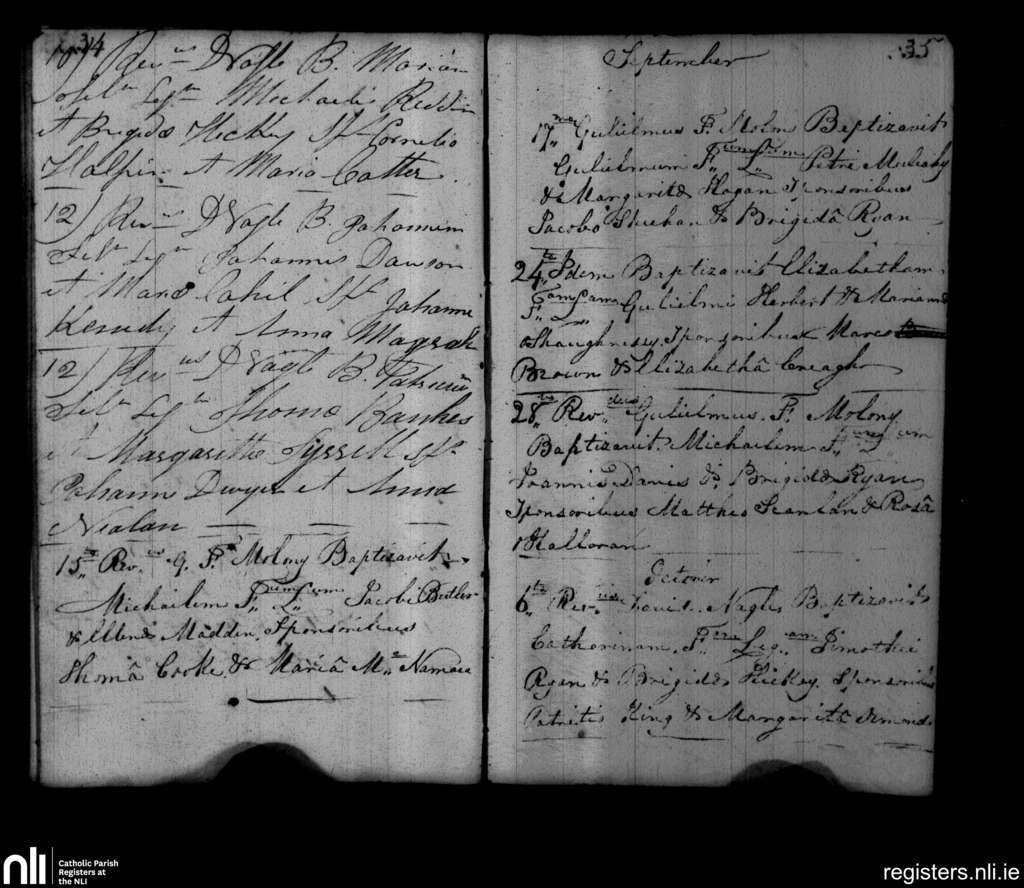 34
10) Revus D Nagle B. Mariam
Filam Legm Michaelis Reddin
et Brigidæ Hickey Sps Cornelio
Halpin et Maria Cotter
12) Revus D Nagle B. Johannem
Film Legm Johannis Dawson
et Mariæ Cahil Sps Johanni
Kenedy et Anna
12) Revus D Nagle B. Patricium
Film Legm Thomæ Bankes
et Margarittæ Tyrrell Sps
Johanni Dwyer et Anna
Nealan
15ta Revus G. F. Molony Baptizavit
Michailem F,,um L,,um Jacobi Butler
& Ellenæ Madden, Sponsoribus
Thomâ Cooke & Mariâ Mc Namara
35
September
17ma Gulielmus F. Molony Baptizavit
Gulielmum F,,um L,,um Petri Mulcahy
& Margaritæ Hogan Sponsoribus
Jacobo Sheehan & Brigidâ Ryan
24ta Idem Baptizavit Elizabetham
F,,am L,,am Gulielmi Herbert & Mariannæ
O Shaughnessy. Sponsoribus Marco
Brown & Elizabethâ Creagh
28va Rev,,dus Gulielmus. F. Molony
Baptizavit. Michailem F,,um L,,um
Joannis Davis & Brigidæ Ryan
Sponsoribus Mattheo Scanlan & Rosâ
O'Halloran
October
6ta Rev,,dus David. Nagle Baptizavit
Catherinam. F,,am Leg,,am Timothei
Ryan & Brigidæ Hickey. Sponsoribus
Patritio King & Margaritâ
nli
Catholic Parish
Registers at
the NLI
registers.nli.ie